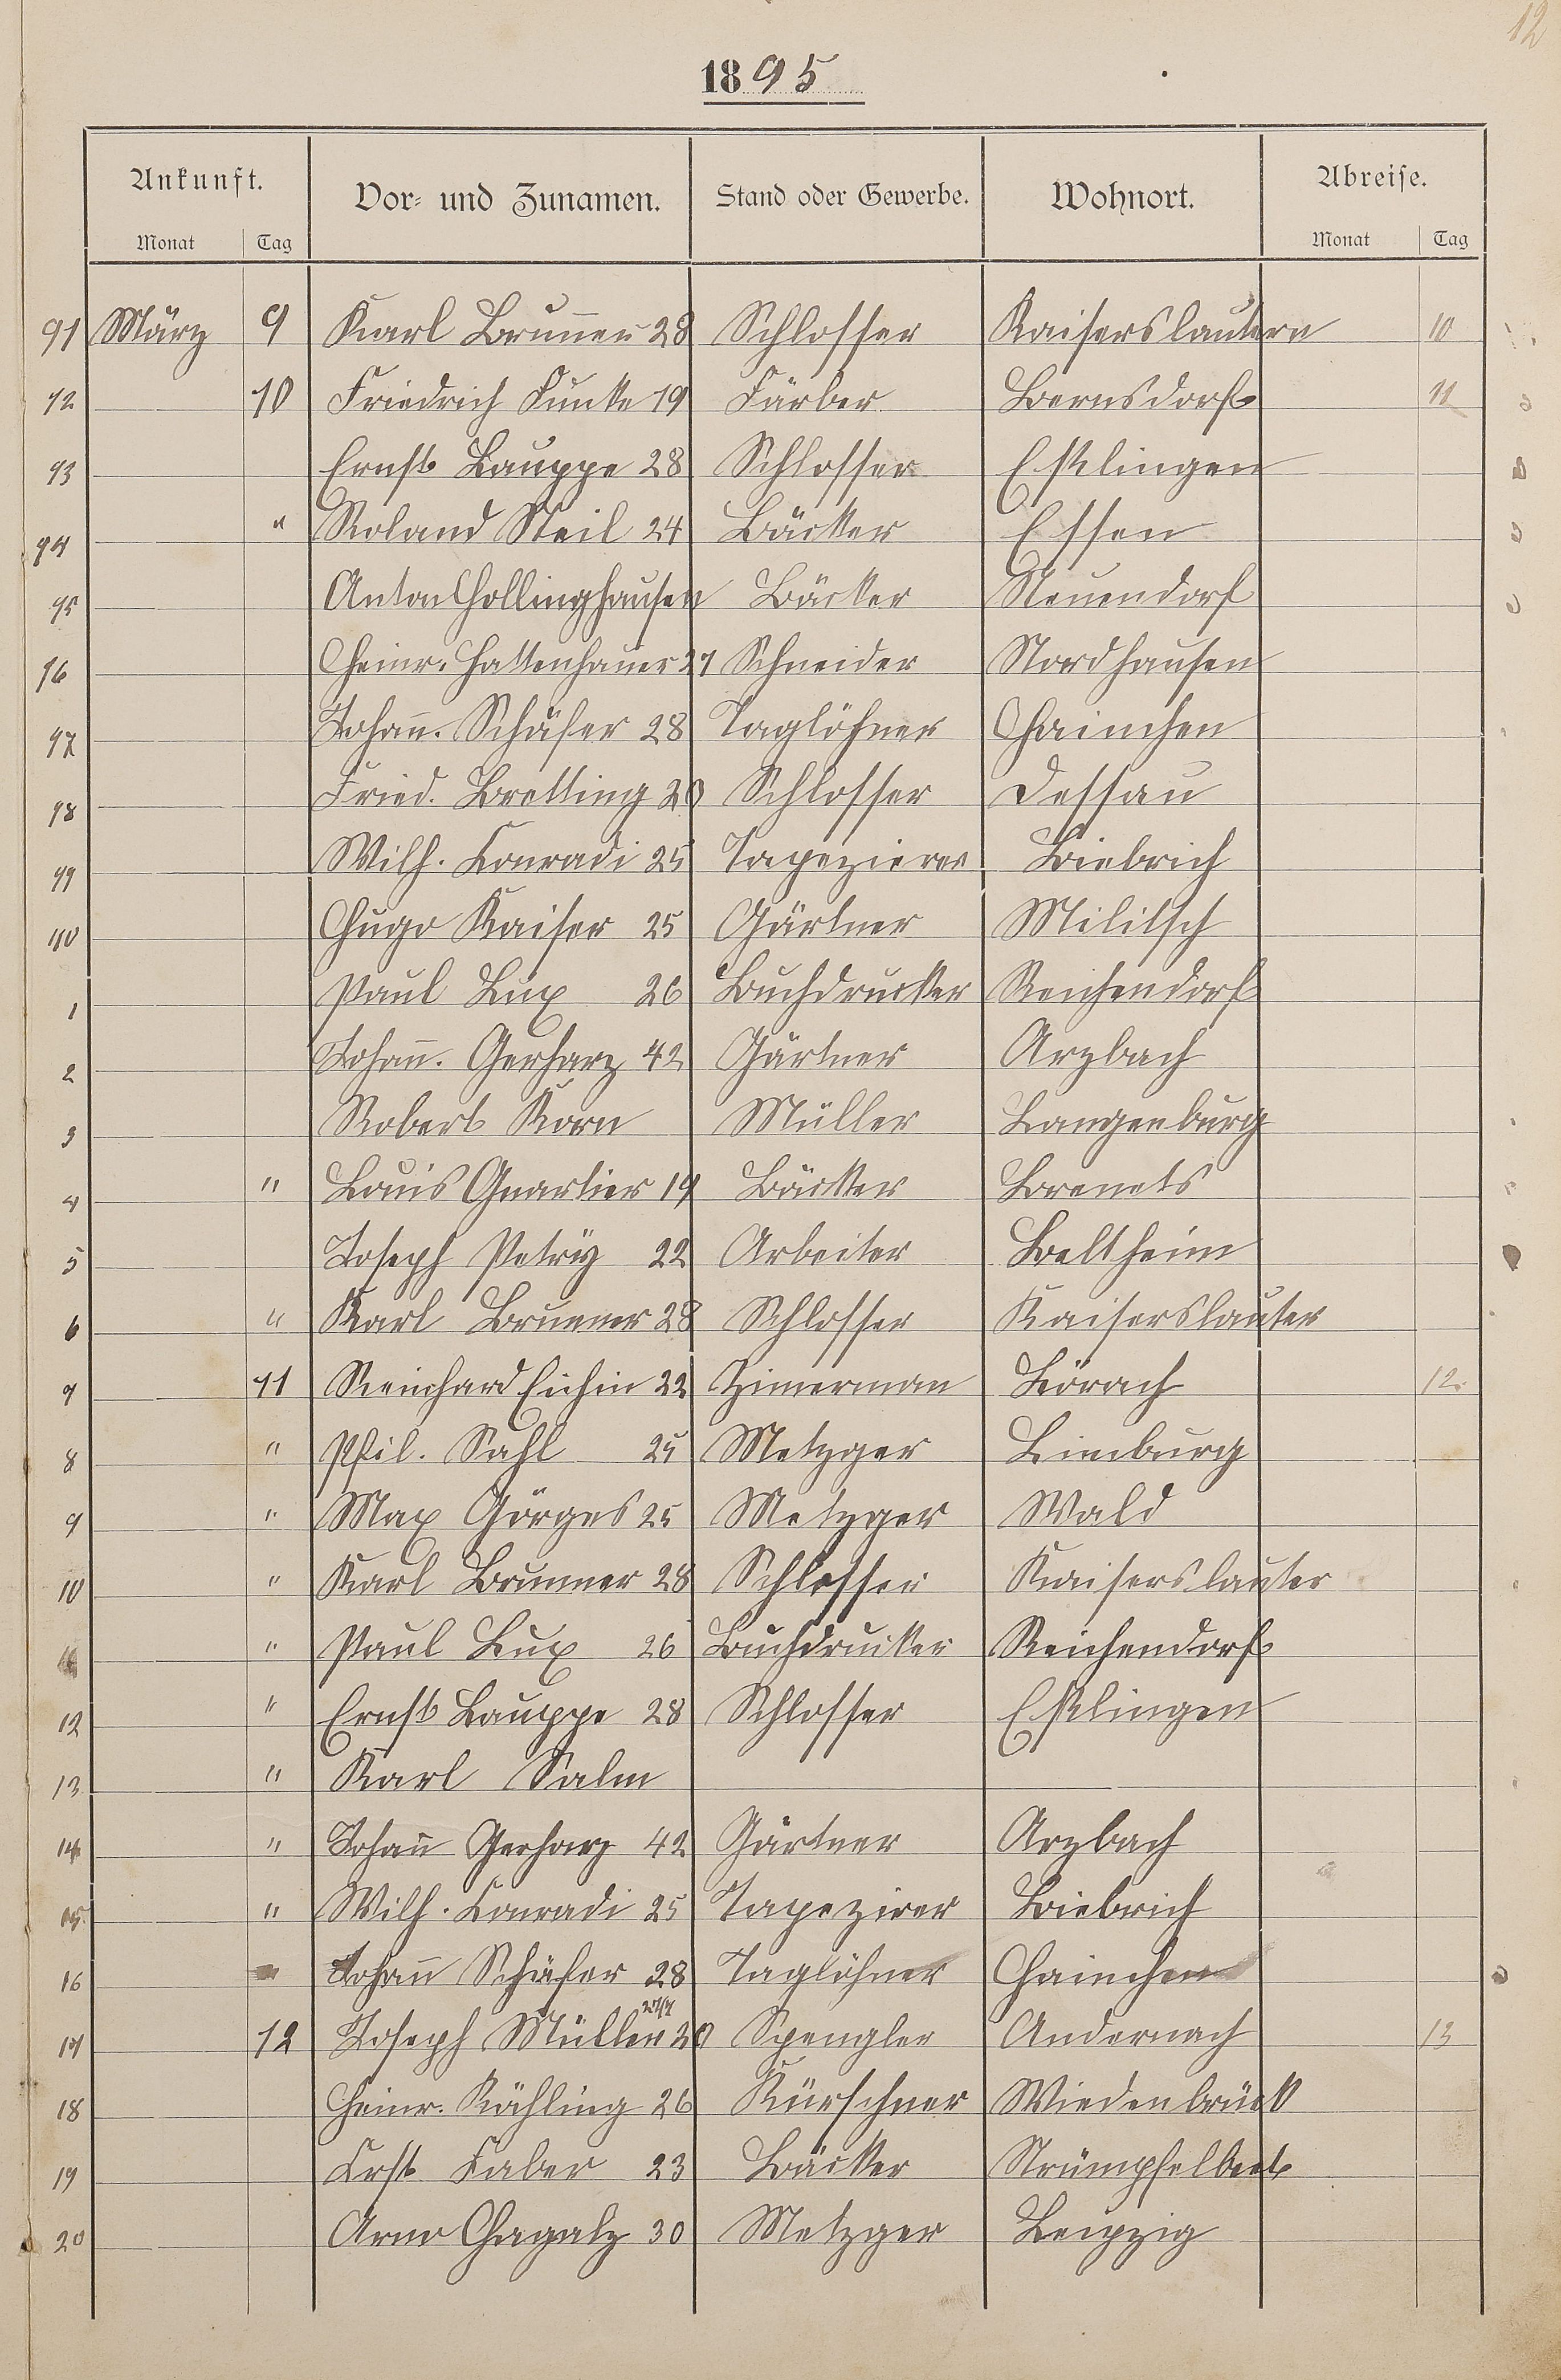 12
1895
Ankunft. Vor- und Zunamen. Stand oder Gewerbe. Wohnort. Abreise.
Monat Tag Monat Tag
91 März 9 Karl Brunner 28 Schlosser Kaiserslautern 10
92 10 Friedrich Funke 19 Färber Bernsdorf 11
93 Ernst Lauppe 28 Schlosser Eßlingen
94 " Roland Steil 24 Bäcker Essen
95 Anton Hollinghausen Bäcker Neuendorf
96 Heinr. Hattenhauer 27 Schneider Nordhausen
97 Johann. Schäfer 28 Taglöhner Hainchen
98 Fried. Bretting 20 Schlosser Dessau
99 Wilh. Conradi 25 Tapezierer Biebrich
100 Hugo Kaiser 25 Gärtner Militsch
1 Paul Lux 26 Buchdrucker Reichendorf
2 Johann. Gerharz 42 Gärtner Arzbach
3 Robert Korn Müller Langenburg
4 " Louis Quartier 19 Bäcker Brenets
5 Joseph Petry 22 Arbeiter Beltheim
6 " Karl Brunner 28 Schlosser Kaiserslauter
7 11 Reinhard Eichin 22 Zimerman Lörach 12.
8 " Phil. Sahl 25 Metzger Limburg
9 " Max Görges 25 Metzger Wald
10 " Karl Brunner 28 Schlosser Kaiserslauter
" Paul Lux 26 Buchdrucker Reichendorf
12 " Ernst Lauppe 28 Schlosser Eßlingen
13 " Karl Salm
14 " Johann Gerharz 42 Gärtner Arzbach
15 " Wilh. Conradi 25 Tapezirer Biebrich
16 Johann Schäfer 28 Taglöhner Hainchen
17 12 Joseph Müller 20 Spengler Andernach 13
18 Heinr. Röhling 26 Kürschner Wiedenbrück
19 Faber 23 Bäcker
20 Arno 30 Metzger Leipzig